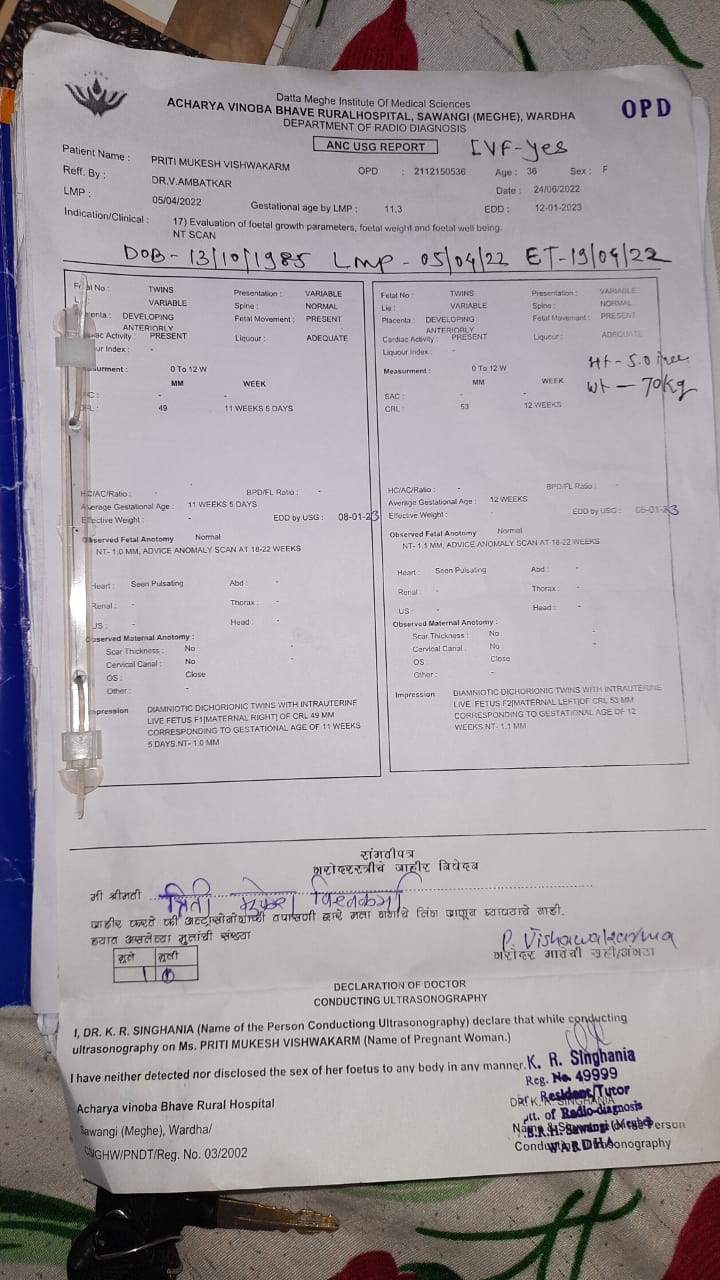 Datta Meghe Institute Of Medical Sciences
ACHARYA VINOBA BHAVE RURALHOSPITAL, SAWANGI (MEGHE), WARDHA
DEPARTMENT OF RADIO DIAGNOSIS
OPD
ANC USG REPORT
IVF-Yes
Patient Name : PRITI MUKESH VISHWAKARM OPD : 2112150536 Age : 36 Sex : F
Reff. By : DR.V.AMBATKAR Date : 24/06/2022
LMP : 05/04/2022 Gestational age by LMP : 11.3 EDD : 12-01-2023
Indication/Clinical : 17) Evaluation of foetal growth parameters, foetal weight and foetal well being.
NT SCAN
DOB-13/10/1985 LMP-05/04/22 ET-19/04/22
al No : TWINS Presentation : VARIABLE
VARIABLE Spine : NORMAL
enta : DEVELOPING ANTERIORLY Fetal Movement : PRESENT
ac Activity : PRESENT Liquour : ADEQUATE
ur Index : -
surment : 0 To 12 W
MM WEEK
C : - -
RL : 49 11 WEEKS 5 DAYS
HC/AC/Ratio : - BPD/FL Ratio : -
Average Gestational Age : 11 WEEKS 5 DAYS
Effective Weight : - EDD by USG : 08-01-23
Observed Fetal Anatomy Normal
NT- 1.0 MM, ADVICE ANOMALY SCAN AT 18-22 WEEKS
Heart : Seen Pulsating Abd : -
Renal : - Thorax : -
US : - Head : -
Observed Maternal Anotomy :
Scar Thickness : No -
Cervical Canal : No -
OS : Close
Other : -
mpression DIAMNIOTIC DICHORIONIC TWINS WITH INTRAUTERINE
LIVE FETUS F1[MATERNAL RIGHT] OF CRL 49 MM
CORRESPONDING TO GESTATIONAL AGE OF 11 WEEKS
5 DAYS.NT- 1.0 MM
Fetal No : TWINS Presentation : VARIABLE
Lie : VARIABLE Spine : NORMAL
Placenta : DEVELOPING ANTERIORLY Fetal Movement : PRESENT
Cardiac Activity : PRESENT Liquour : ADEQUATE
Liquour Index : -
Ht - 5.0
Measurment : 0 To 12 W
wt - 70kg
MM WEEK
SAC : - -
CRL : 53 12 WEEKS
HC/AC/Ratio : - BPD/FL Ratio : -
Average Gestational Age : 12 WEEKS
Effective Weight : - EDD by USG : 06-01-23
Observed Fetal Anotomy Normal
NT- 1.1 MM, ADVICE ANOMALY SCAN AT 18-22 WEEKS
Heart : Seen Pulsating Abd : -
Renal : - Thorax : -
US : - Head : -
Observed Maternal Anotomy :
Scar Thickness : No -
Cervical Canal : No -
OS : Close
Other : -
Impression DIAMNIOTIC DICHORIONIC TWINS WITH INTRAUTERINE
LIVE FETUS F2[MATERNAL LEFT]OF CRL 53 MM
CORRESPONDING TO GESTATIONAL AGE OF 12
WEEKS.NT- 1.1 MM
गरोदरस्त्रीचे जाहीर
मी श्रीमती प्रिती मुकेश विश्वकर्मा
जाहीर करते की द्वारे मला लिंग जाणून घ्यायचे नाही.
हयात असलेल्या मुलांची संख्या
P. Vishawakarma
मुले मुली
गरोदर मातेची सही/अंगठा
1 0
DECLARATION OF DOCTOR
CONDUCTING ULTRASONOGRAPHY
I, DR. K. R. SINGHANIA (Name of the Person Conductiong Ultrasonography) declare that while conducting
ultrasonography on Ms. PRITI MUKESH VISHWAKARM (Name of Pregnant Woman.)
I have neither detected nor disclosed the sex of her foetus to any body in any manner.
K. R. Singhania
Reg. No. 49999
Resident/Tutor
tt. of Radio-diagnosis
Acharya vinoba Bhave Rural Hospital
Sawangi (Meghe), Wardha/
B.R.H. Sawangi (Meghe)
WARDHA
/PNDT/Reg. No. 03/2002